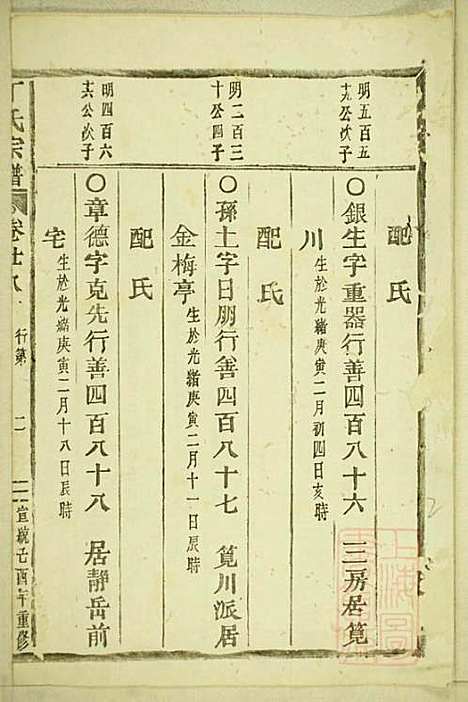 配氏
明五百五
十九公次子
〇銀生字重器行善四百八十六　三房居筧
川　生於光緒庚寅二月初四日亥時
配氏
明二百三
十公四子
〇孫土字日朋行善四百八十七　筧川派居
金梅亭　生於光緒庚寅二月十一日辰時
配氏
明四百六
十六公次子
〇章德字克先行善四百八十八　居靜岳前
宅　生於光緒庚寅二月十八日辰時
丁氏宗譜　卷廿八　行第　二　宣統己酉年重修